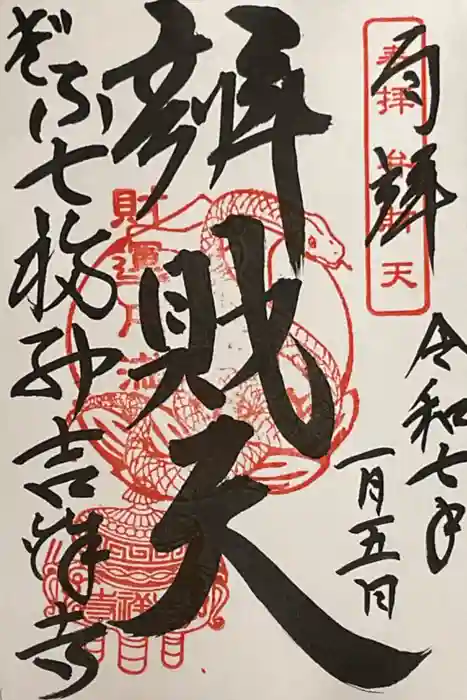 奉拝
令和七年
一月五日
辨財天
ぎふ七福神 吉祥寺
奉拝 弁財天
財運円満
吉祥